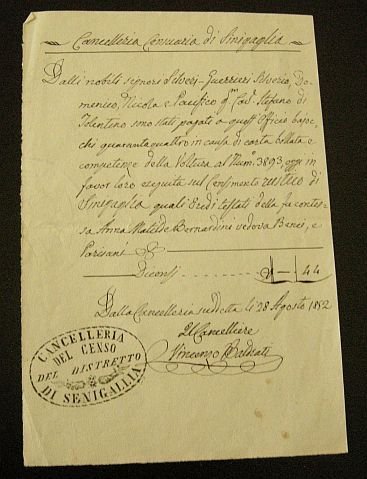 Cancelleria Censuaria di Sinigaglia
Dalli nobili signori Silverj-Guerrieri Silverio, Do-
menico, Nicola e Pacifico qm Cav. Stefano di
Tolentino sono stati pagati a quest'Officio bajoc-
chi quaranta quattro in causa di carta bollata e
competenze della Voltura al Num.° 3893 oggi in
favor loro eseguita sul Censimento rustico di
Sinigaglia quali Eredi testati della fu contes-
sa Anna Matilde Bernardini vedova e
Parisani
Diconsi — 44
Dalla Cancelleria suddetta li 28 Agosto 1852
Il Cancelliere
Vincenzo
CANCELLERIA
DEL CENSO
DEL DISTRETTO
DI SENIGALLIA